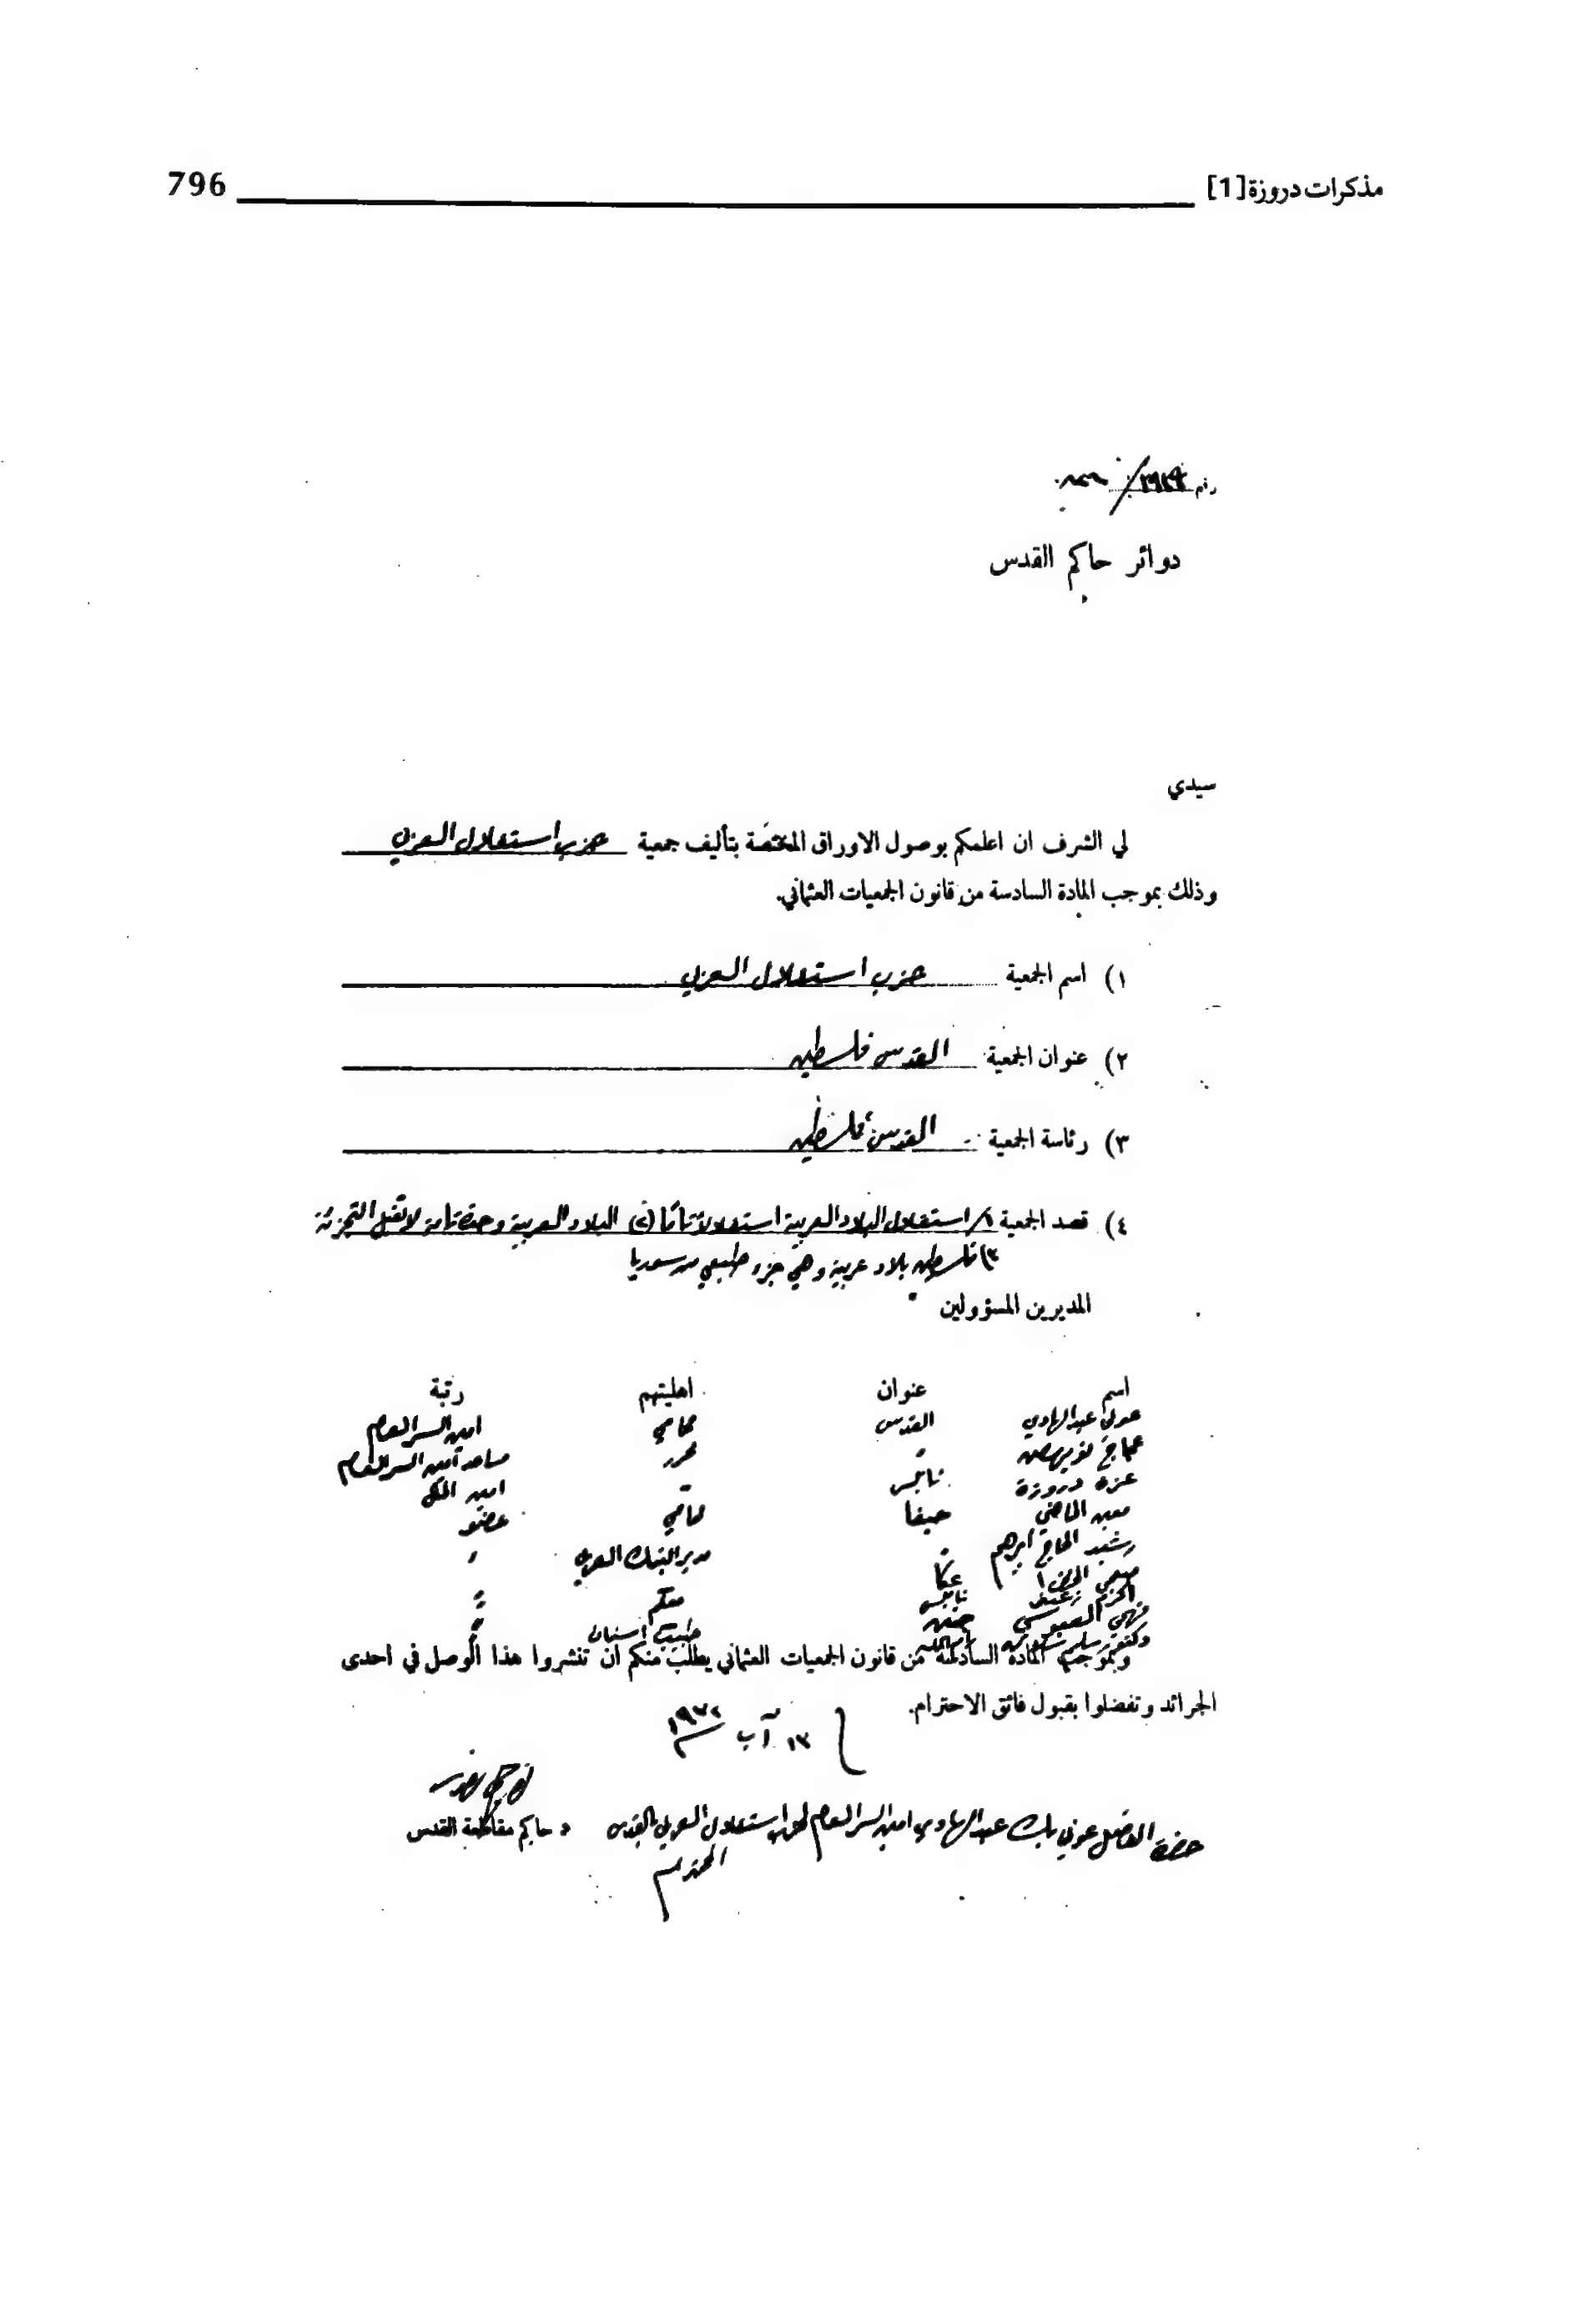 مذكرات دروزة [1] 796
رقم
دوائر حاكم القدس
سيدي
لي الشرف ان اعلمكم بوصول الاوراق المختصة بتأليف جمعية حزب استقلال العربي
وذلك بموجب المادة السادسة من قانون الجمعيات العثماني.
١) اسم الجمعية حزب استقلال العربي
٢) عنوان الجمعية القدس فلسطين
٣) رئاسة الجمعية القدس فلسطين
٤) قصد الجمعية ١/ استقلال البلاد العربية استقلالا تاما (٢) البلاد العربية وحدة تامة لا تقبل التجزئة
٣) فلسطين بلاد عربية وهي جزء طبيعي من سوريا
المديرين المسؤولين
اسم عنوان اهليتهم رتبة
عوني عبد الهادي القدس محامي امين السر العام
عجاج نويهض " محرر مساعد امين السر العام
عزة دروزة نابلس " امين المال
معين الماضي حيفا محامي عضو
رشيد الحاج ابرهيم " مدير البنك العربي "
صبحي الخضرا عكا
اكرم زعيتر نابلس معلم "
فهمي العبوشي جنين "
دكتور سليم طبيب اسنان
وبموجب المادة السادسة من قانون الجمعيات العثماني يطلب منكم ان تنشروا هذا الوصل في احدى
الجرائد وتفضلوا بقبول فائق الاحترام.
١٣ آب ١٩٣٢
حاكم مقاطعة القدس
حضرة الفاضل عوني بك عبد الهادي امين السر العام لحزب استقلال العربي بالقدس
المحترم